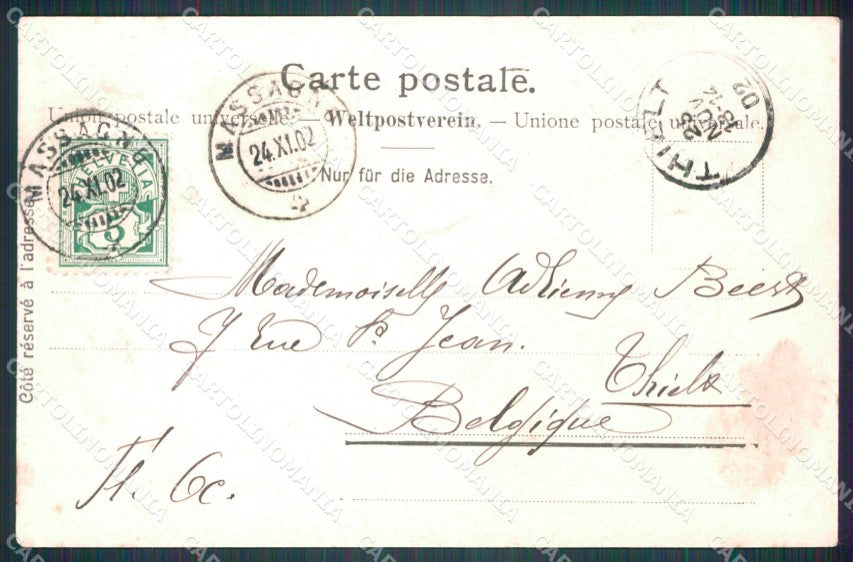 Carte postale.
Union postale universelle. — Weltpostverein. — Unione postale universale.
Nur für die Adresse.
Côté réservé à l'adresse.
MASSAGNO
24.XI.02
HELVETIA
5
MASSAGNO
24.XI.02
THIELT
NOV
02
Mademoiselle Adrienne Beert
7 rue St. Jean.
Thielt
Belgique
CARTOLINOMANIA